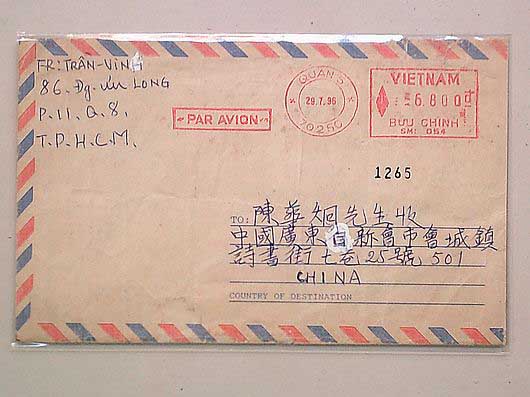 FR: TRÂN-VINH
86. Đg. ưu LONG
P.11. Q.8.
T.P.H.C.M.
PAR AVION
QUAN 5
29.7.96
70250
VIETNAM
6.800đ
BUU CHINH
SM: 054
1265
TO: 陳華炯先生收
中國廣東省新會市會城鎮
詩書街七巷25號501
CHINA
COUNTRY OF DESTINATION